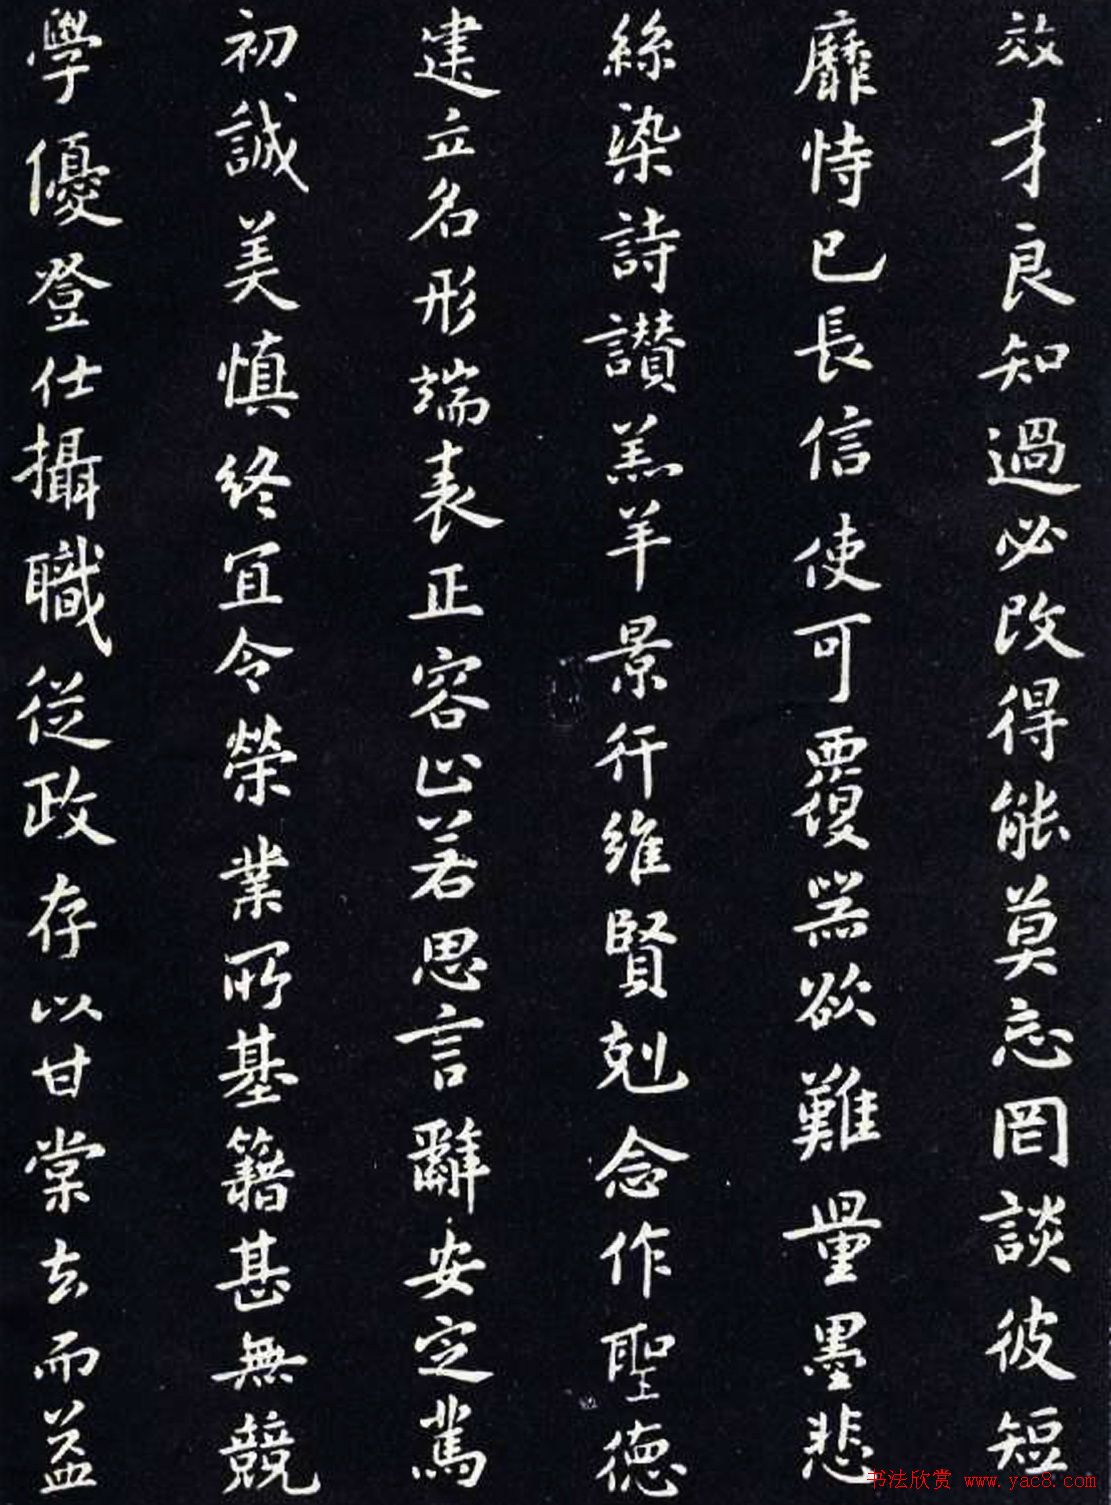 效才良知過必改得能莫忘罔談彼短
靡恃已長信使可覆器欲難量墨悲
絲染詩讚羔羊景行維賢剋念作聖德
建立名形端表正容止若思言辭安定篤
初誠美慎終宜令榮業所基籍甚無競
學優登仕攝職從政存以甘棠去而益
书法欣赏 www.yac8.com